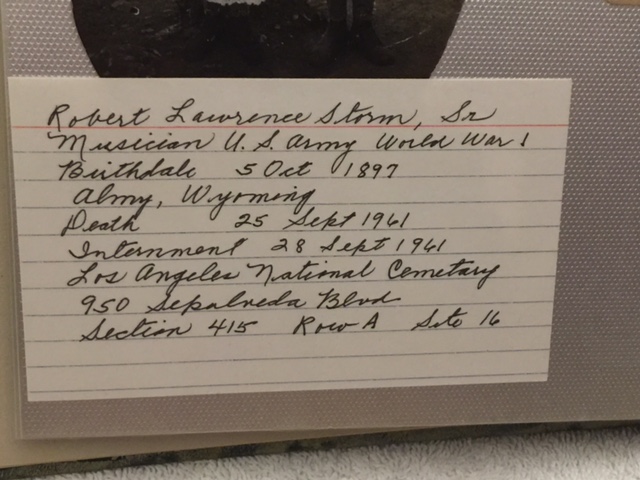 Robert Lawrence Storm, Sr
Musician U.S. Army World War 1
Birthdate 5 Oct 1897
Almy, Wyoming
Death 25 Sept 1961
Internment 28 Sept 1961
Los Angeles National Cemetary
950 Sepulveda Blvd
Section 415 Row A Site 16